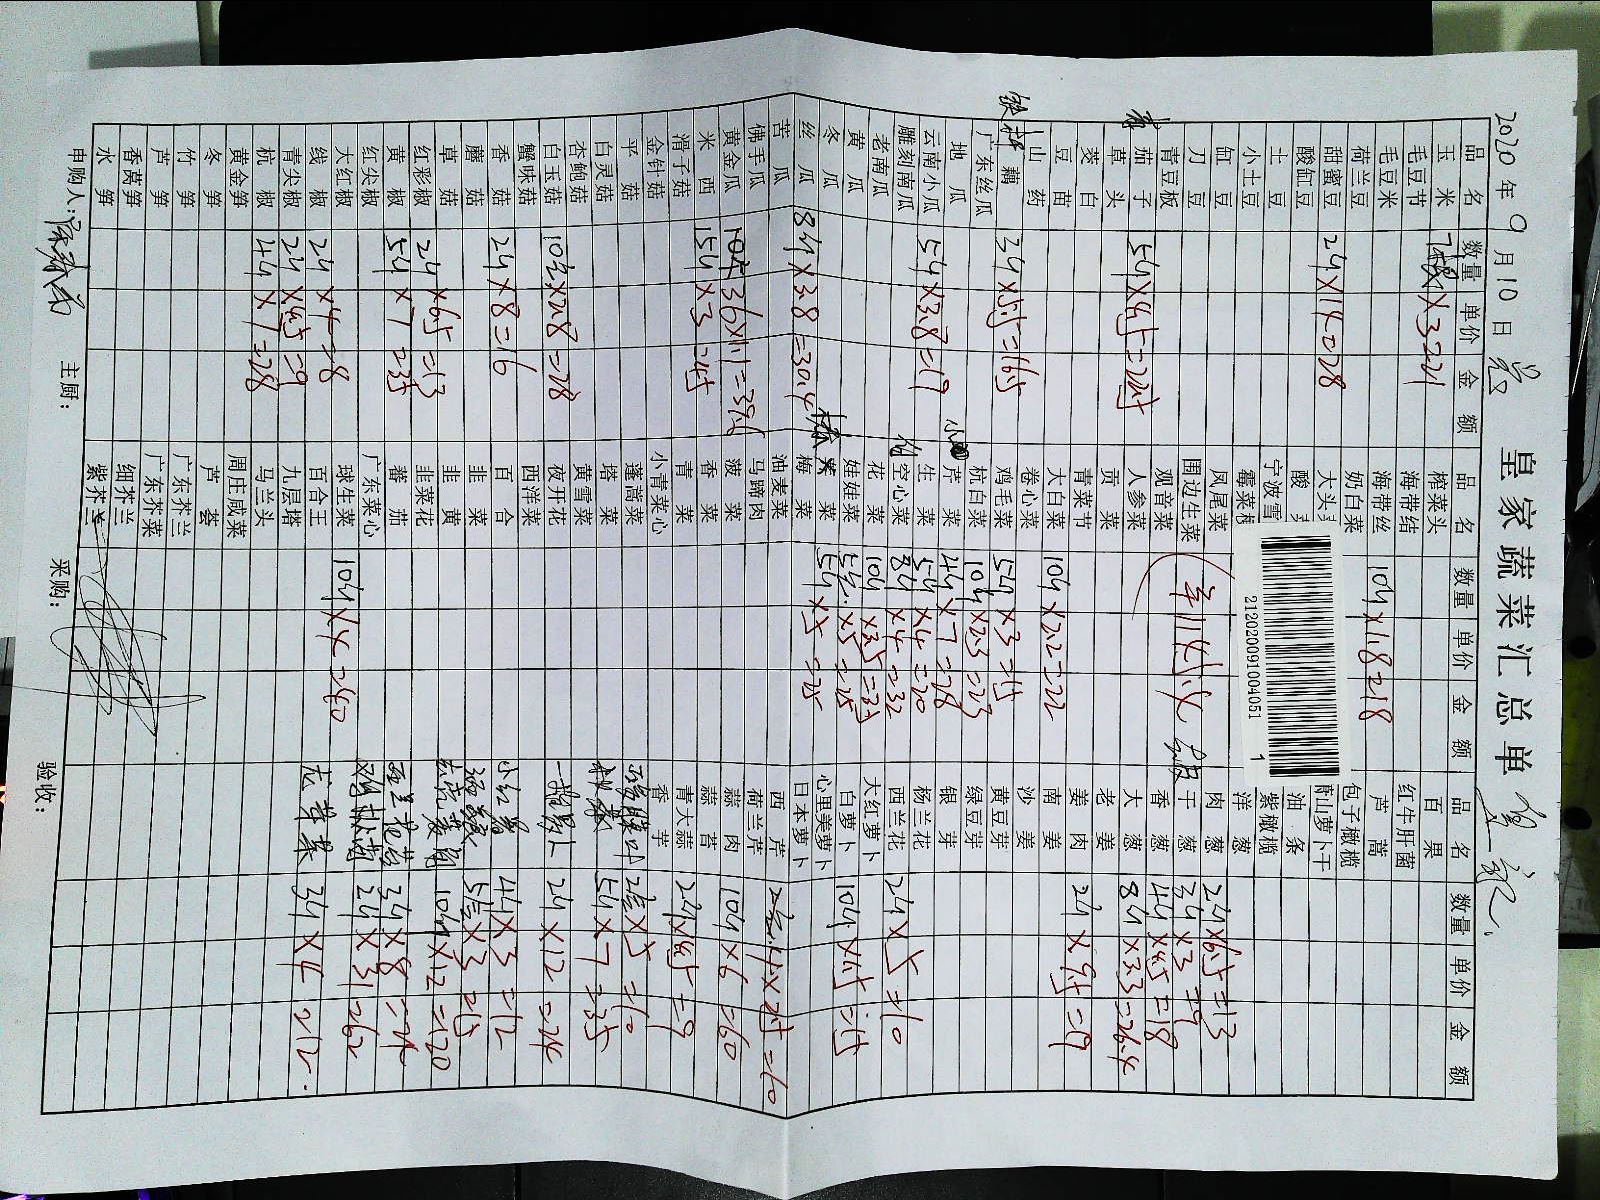 皇家蔬菜汇总单
2020年9月10日
品名 数量 单价 金额 品名 数量 单价 金额 品名 数量 单价 金额
玉米 榨菜头 百果
毛豆节 ×3=21 海带结 红牛肝菌
毛豆米 海带丝 10斤×1.8=18 芦蒿
荷兰豆 奶白菜 包子橄榄
甜蜜豆 2斤×14=28 大头 萧山萝卜干
酸缸豆 酸 油条
土豆 宁波雪 紫橄榄
小土豆 霉菜 洋葱
缸豆 凤尾菜 肉葱 2斤×6.5=13
刀豆 围边生菜 干葱 3斤×3=9
青豆板 观音菜 香葱 4斤×4.5=18
茄子 5斤×4.5=22.5 人参菜 大葱 8斤×3.3=26.4
草头 贡菜 老姜
茭白 青菜节 姜肉 2斤×4.5=9
豆苗 大白菜 10斤×2.2=22 南姜
山药 卷心菜 沙姜
藕 3斤×5.5=16.5 鸡毛菜 5斤×3=15 黄豆芽
广东丝瓜 杭白菜 10斤×2.3=23 绿豆芽
地瓜 芹菜 4斤×7=28 银芽
云南小瓜 5斤×3.8=19 生菜 5斤×4=20 杨兰花
雕刻南瓜 空心菜 8斤×4=32 西兰花 2斤×5=10
老南瓜 花菜 10斤×3.5=35 大红萝卜
黄瓜 娃娃菜 5×5=25 白萝卜 10斤×1.5=15
冬瓜 紫菜 5斤×5=25 心里美萝卜
丝瓜 8斤×3.8=30.4 梅菜 日本萝卜
苦瓜 油麦菜 西芹 ×2.5=10
佛手瓜 马蹄肉 荷兰芹
黄金瓜 3.6×11=39.6 菠菜 蒜肉 10斤×6=60
米西 15斤×3=45 香菜 蒜苔
滑子菇 青菜 青大蒜 2斤×4.5=9
金针菇 小青菜心 香芋
平菇 蓬蒿菜 ×5=10
白灵菇 塔菜 5斤×7=35
杏鲍菇 黄雪菜
白玉菇 10×2.8=28 夜开花 2斤×12=24
蟹味菇 西洋菜
香菇 2斤×8=16 百合 小红薯 4斤×3=12
蘑菇 韭菜 5×3=15
草菇 韭黄 10斤×12=120
红彩椒 2斤×6.5=13 韭菜花 3斤×8=24
黄椒 5斤×7=35 蕃茄 2斤×31=62
红尖椒 广东菜心
大红椒 球生菜 10斤×4=40
线椒 2斤×4=8 百合王 龙芽菜 3斤×4=12
青尖椒 2斤×4.5=9 九层塔
杭椒 4斤×7=28 马兰头
黄金笋 周庄咸菜
冬笋 芦荟
竹笋 广东芥兰
芦笋 广东芥菜
香莴笋 细芥兰
水笋 紫芥兰
申购人: 主厨: 采购: 验收:
21202009100405​1 1